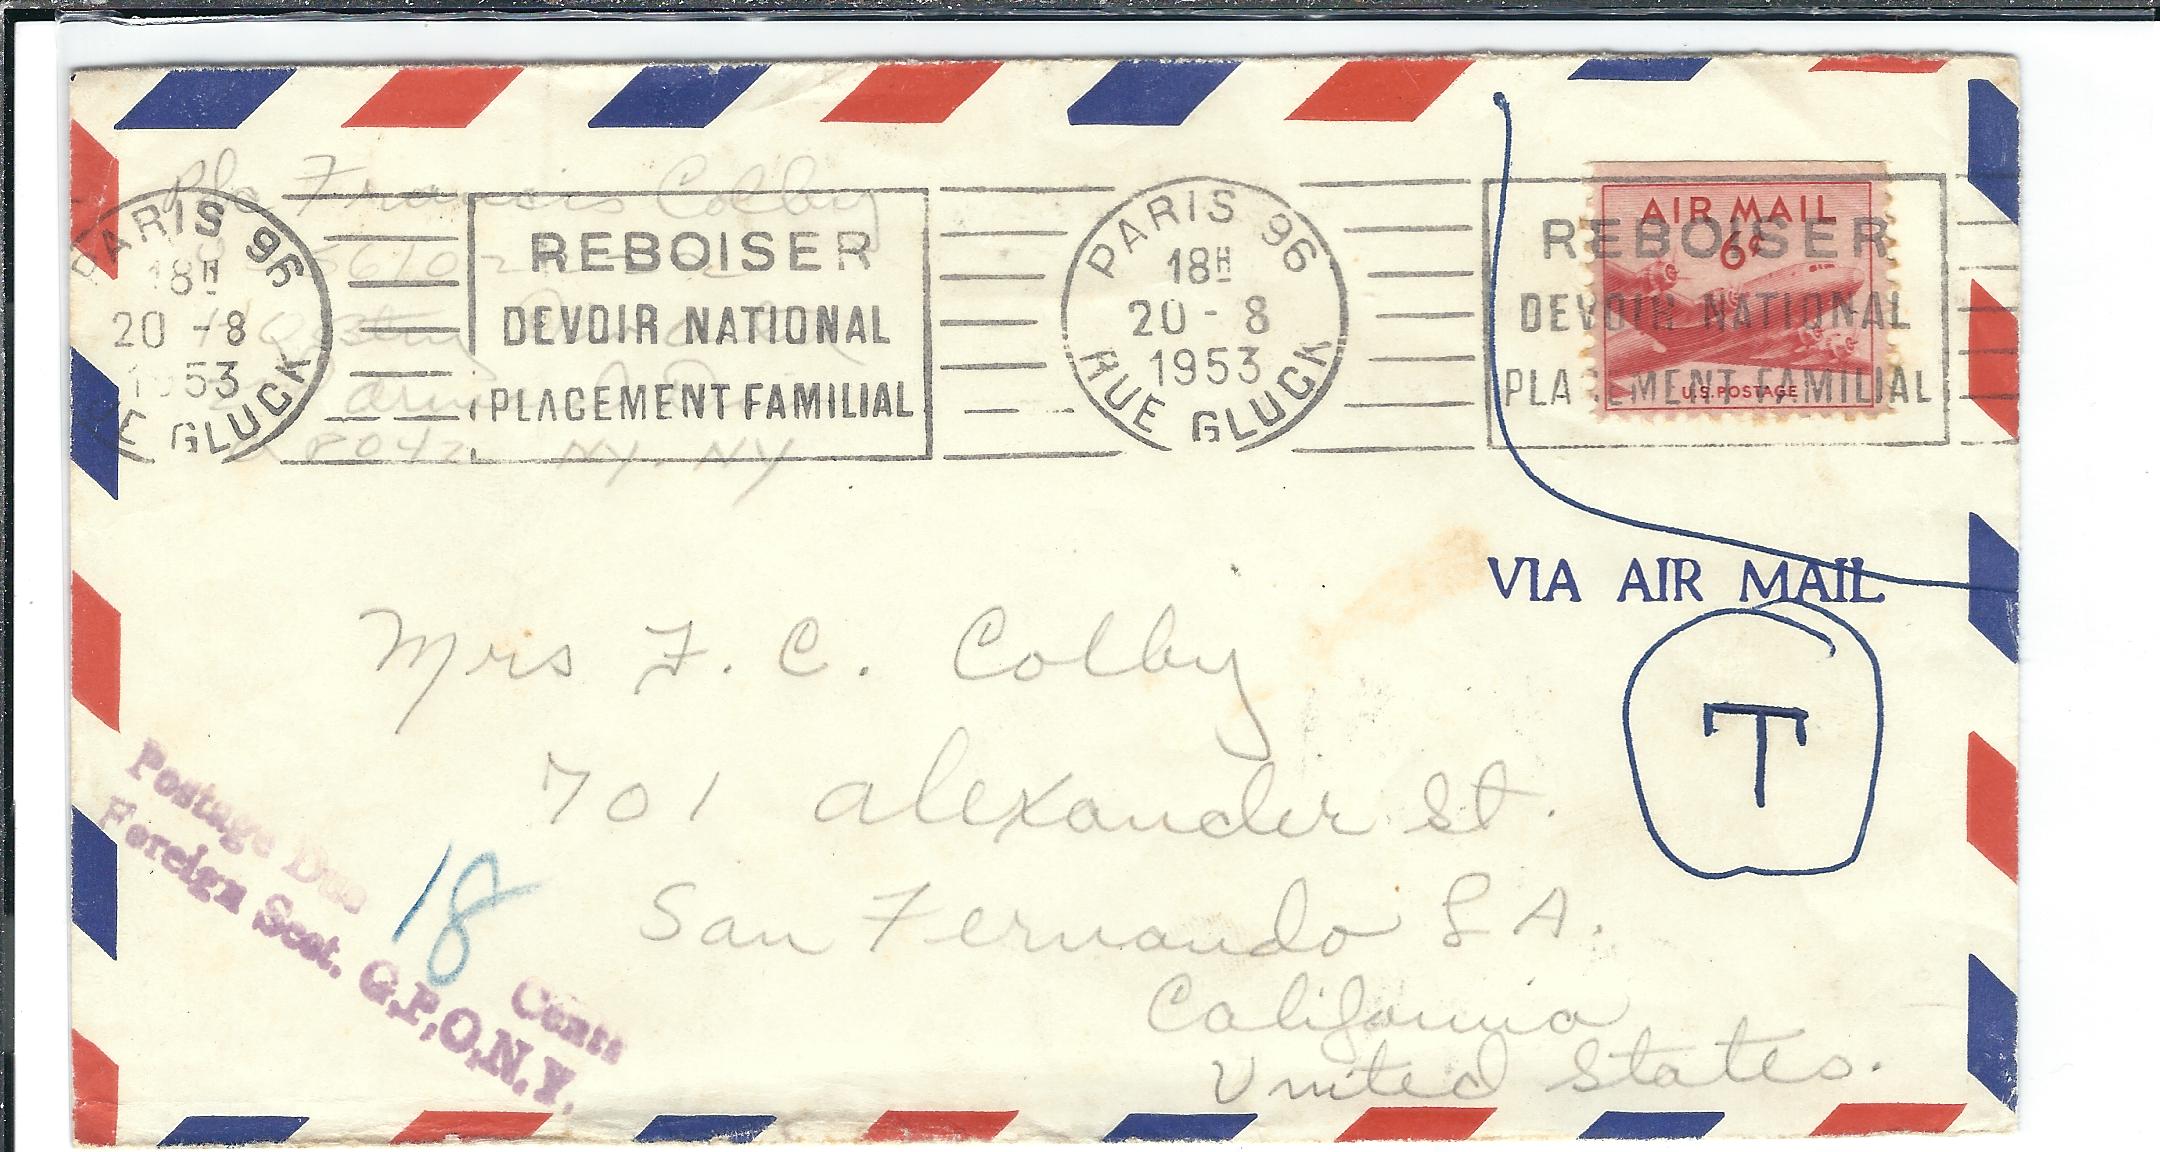 Francis Colby
PARIS 96
18H
20 - 8
1953
RUE GLUCK
REBOISER
DEVOIR NATIONAL
PLACEMENT FAMILIAL
NY. NY
PARIS 96
18H
20 - 8
1953
RUE GLUCK
REBOISER
DEVOIR NATIONAL
PLACEMENT FAMILIAL
AIR MAIL
6¢
U.S. POSTAGE
VIA AIR MAIL
T
Mrs F. C. Colby
701 Alexander St.
San Fernando L A.
California
United States.
Postage Due 18 Cents
Foreign Sect. G.P.O.N.Y.